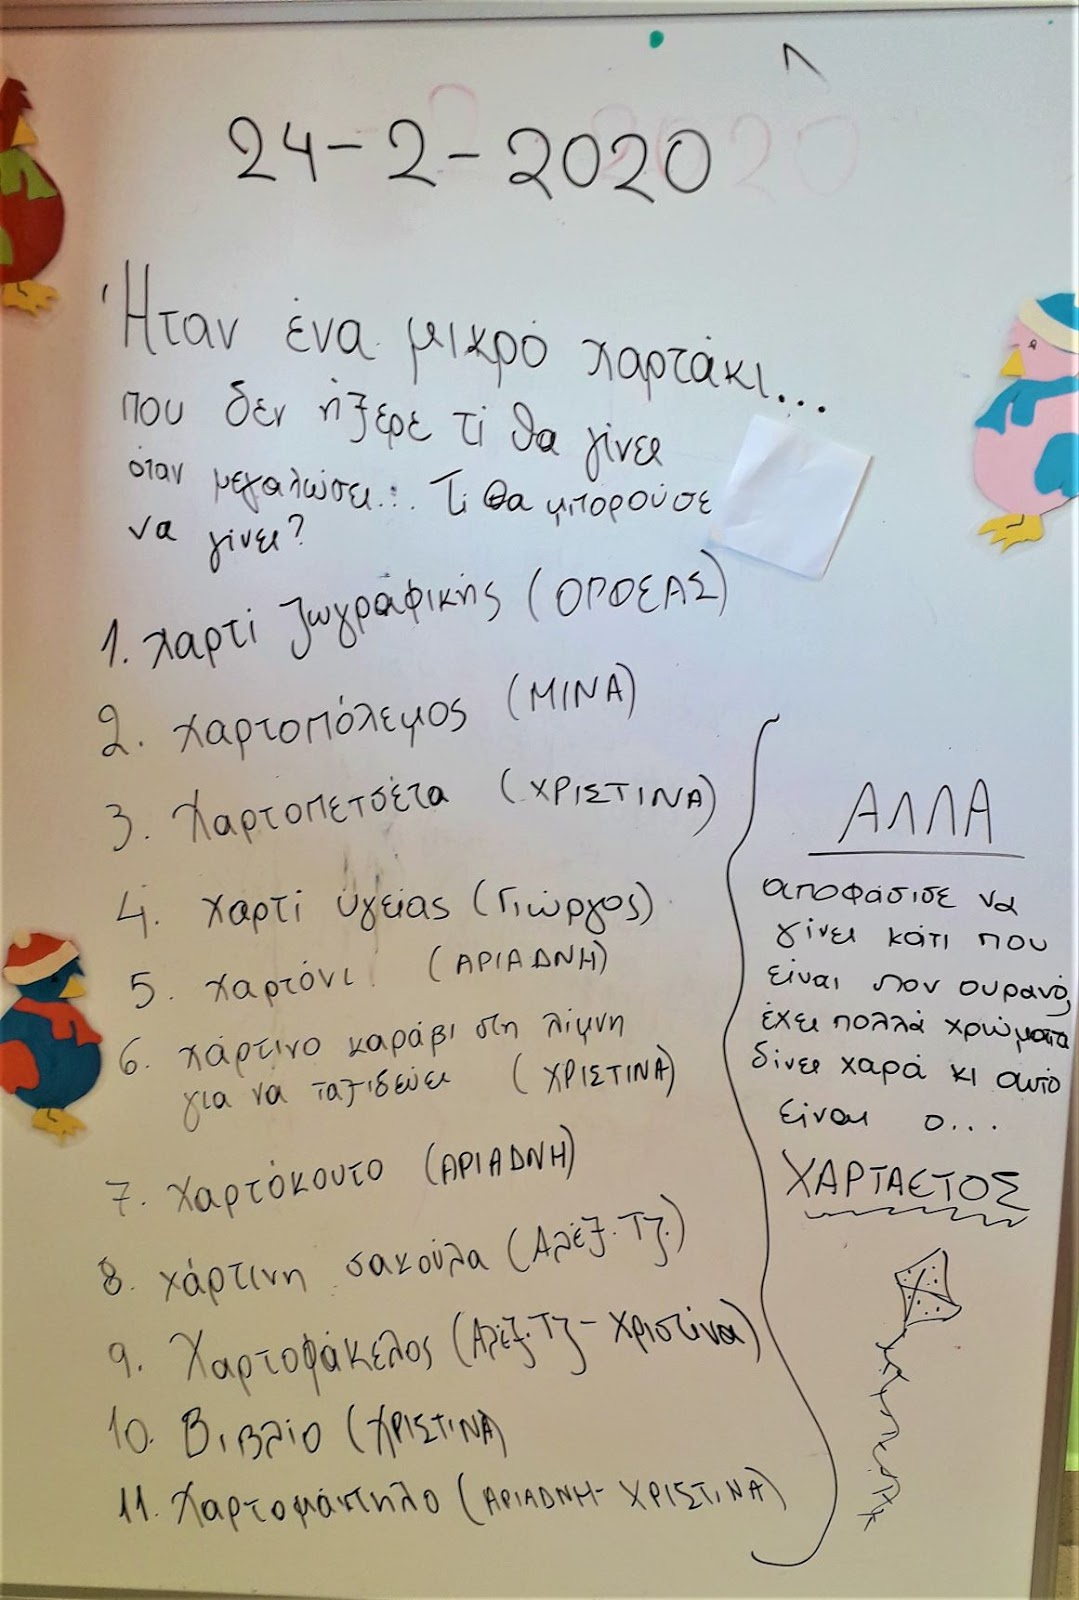 24-2-2020
Ήταν ένα μικρό χαρτάκι...
που δεν ήξερε τί θα γίνει
όταν μεγαλώσει... Τι θα μπορούσε
να γίνει?
1. χαρτί ζωγραφικής (ΟΡΘΕΑΣ)
2. χαρτοπόλεμος (ΜΙΝΑ)
3. Χαρτοπετσέτα (ΧΡΙΣΤΙΝΑ)
4. χαρτί υγείας (Γιώργος)
5. χαρτόνι (ΑΡΙΑΔΝΗ)
6. χάρτινο καράβι στη λίμνη
για να ταξιδεύει (ΧΡΙΣΤΙΝΑ)
7. χαρτόκουτο (ΑΡΙΑΔΝΗ)
8. χάρτινη σακούλα (Αλέξ. Τζ.)
9. Χαρτοφάκελος (Αλέξ. Τζ - Χριστίνα)
10. Βιβλίο (ΧΡΙΣΤΙΝΑ)
11. Χαρτομάντηλο (ΑΡΙΑΔΝΗ - ΧΡΙΣΤΙΝΑ)
ΑΛΛΑ
αποφάσισε να
γίνει κάτι που
είναι στον ουρανό,
έχει πολλά χρώματα
δίνει χαρά κι αυτό
είναι ο...
ΧΑΡΤΑΕΤΟΣ